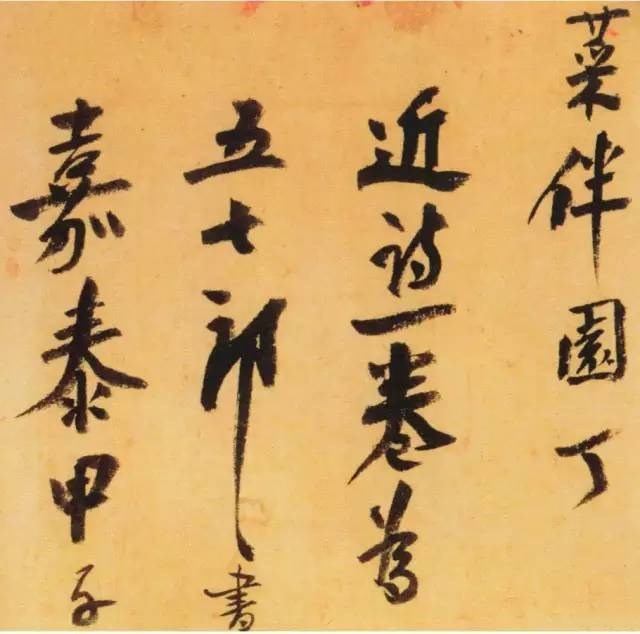 菜伴園丁
近诗一卷為
五七郎書
嘉泰甲子